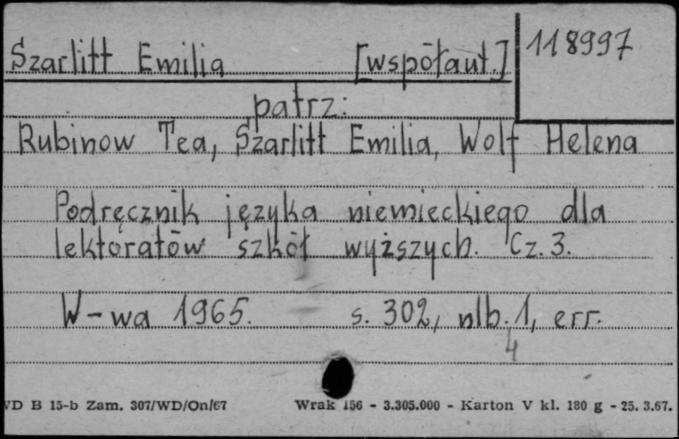 Szarlitt Emilia [współaut.] 118997
patrz:
Rubinow Tea, Szarlitt Emilia, Wolf Helena
Podręcznik języka niemieckiego dla
lektoratów szkół wyższych. Cz. 3.
W-wa 1965. s. 302, nlb. 1, err.
4
VD B 15-b Zam. 307/WD/On/67 Wrak 156 - 3.305.000 - Karton V kl. 180 g - 25. 3.67.